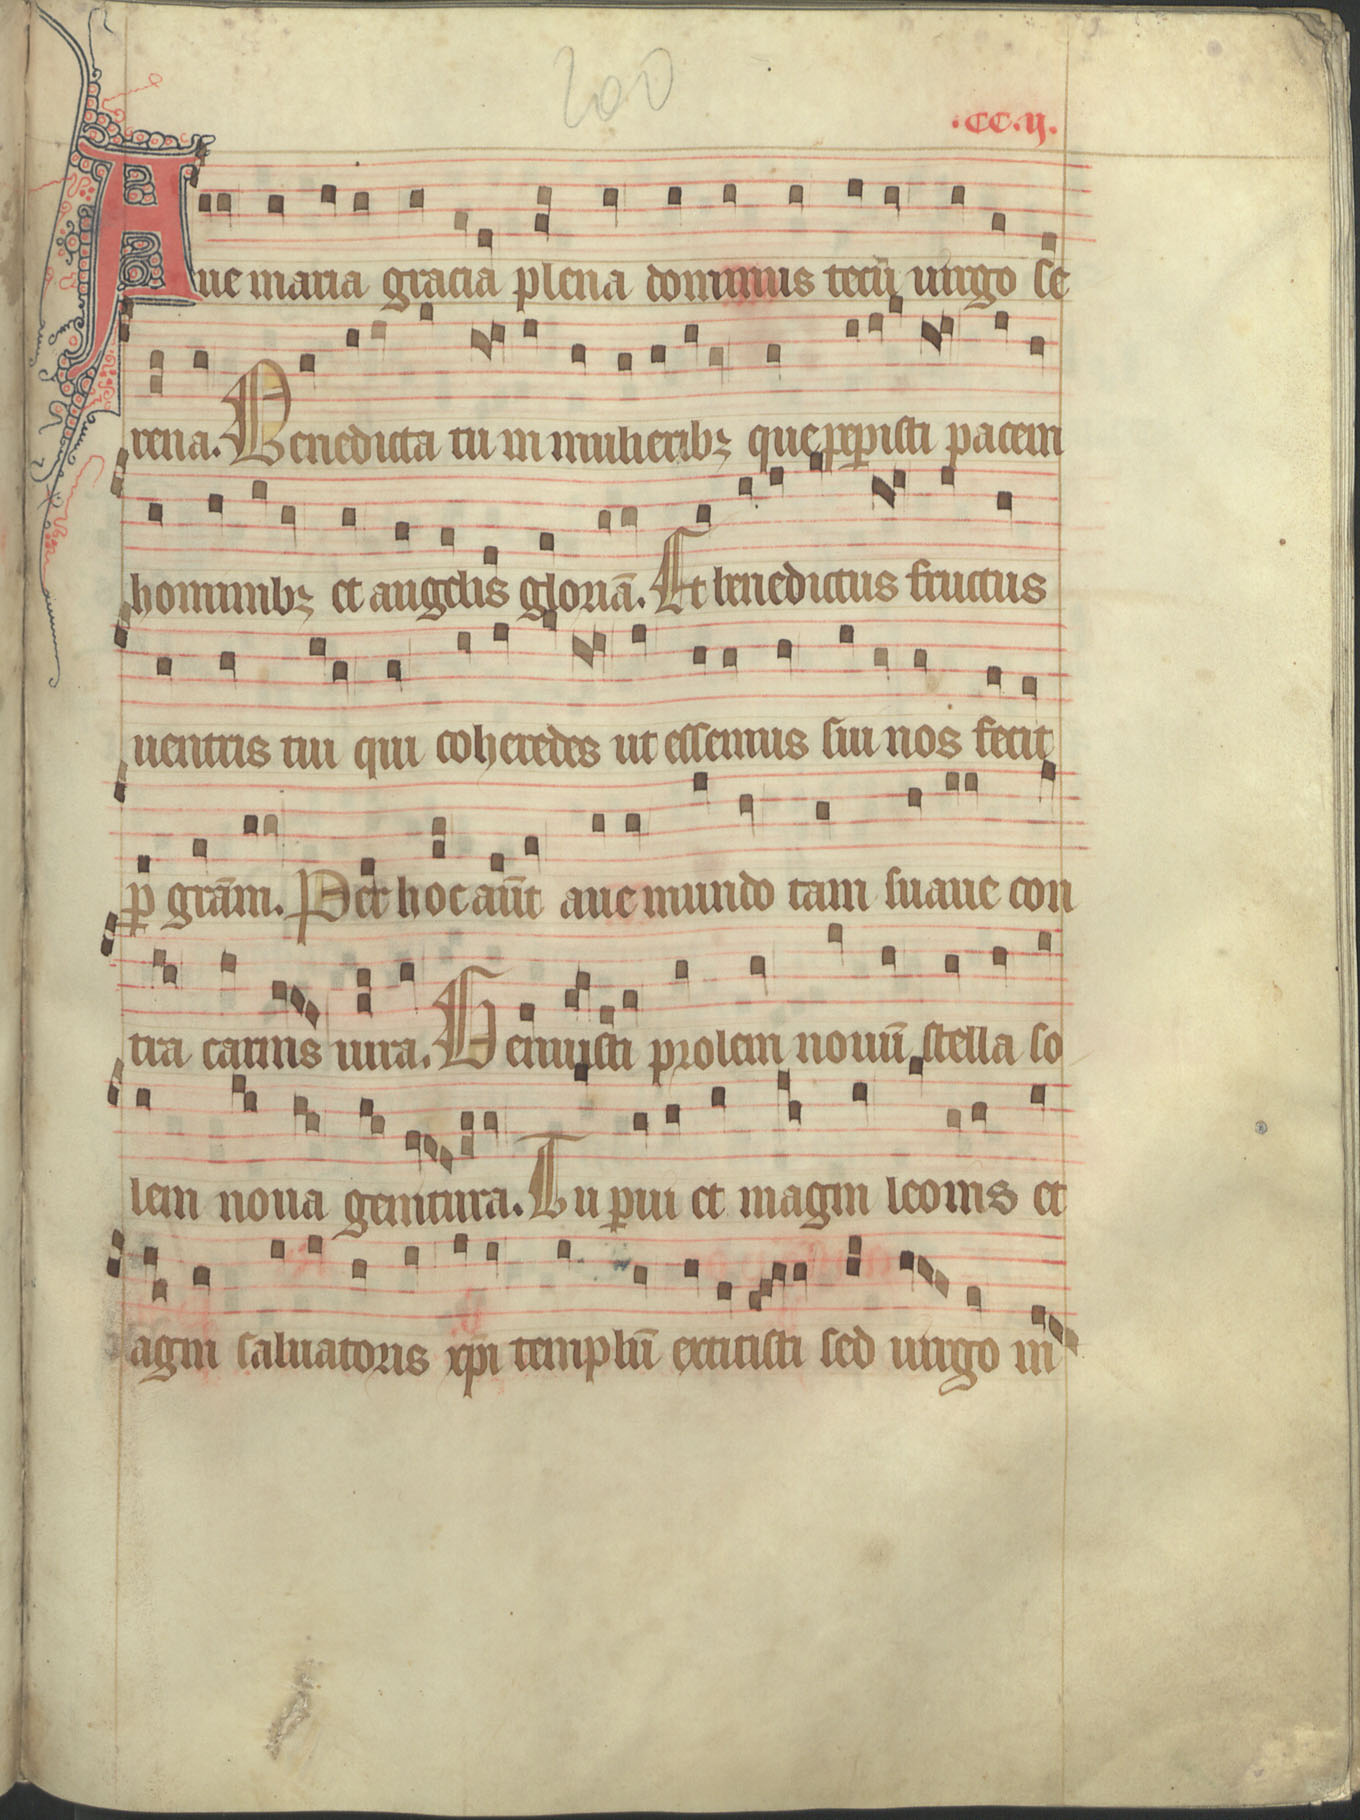 200
·CC·ij·
Aue maria gracia plena dominus tecū uirgo se
rena. Benedicta tu in mulieribꝫ que peꝑisti pacem
hominibꝫ et angelis gloriā. Et benedictus fructus
uentris tui qui coheredes ut essemus sui nos fecit
ꝑ grām. Per hoc aūt aue mundo tam suaue con
tra carnis iura. Genuisti prolem nouū stella so
lem noua genitura. Tu ꝑui et magni leonis et
agni saluatoris xp̄i templū extitisti sed uirgo in